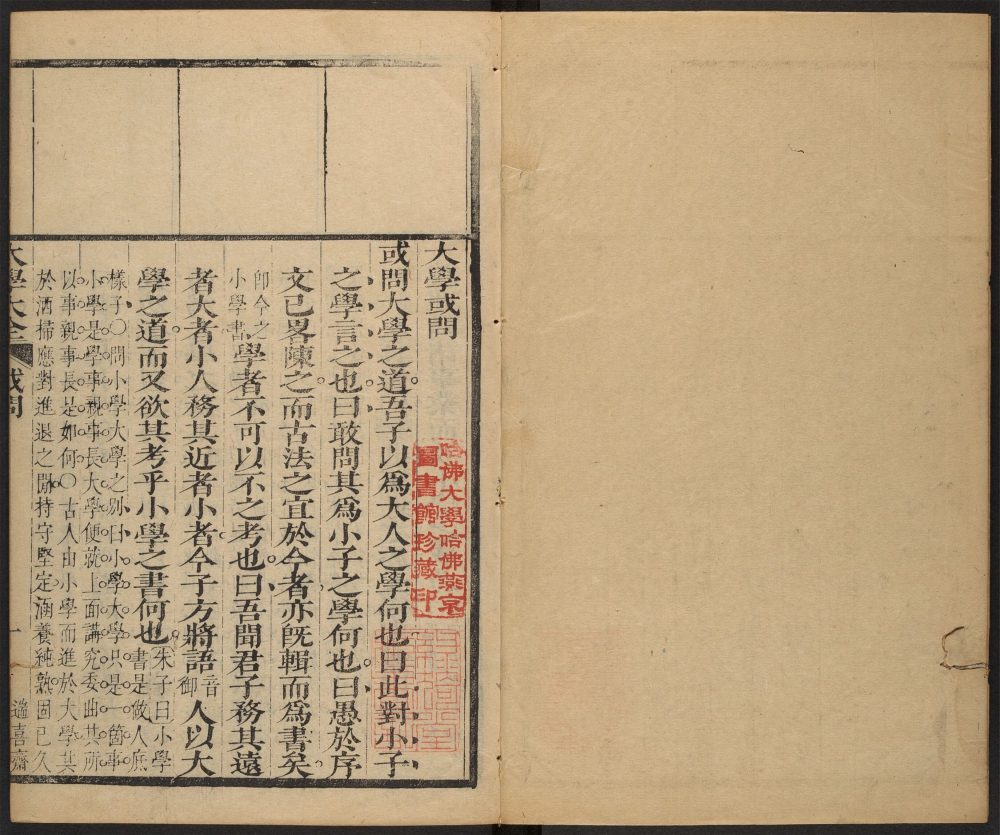 大學或問
或問大學之道吾子以爲大人之學何也曰此對小子
之學言之也曰敢問其爲小子之學何也曰愚於序
文已畧陳之而古法之宜於今者亦既輯而爲書矣
卽今之
小學書
學者不可以不之考也曰吾聞君子務其遠
者大者小人務其近者小者今子方將語
音
御
人以大
學之道而又欲其考乎小學之書何也
朱子曰小學
書是做人底
樣子〇問小學大學之別曰小學大學只是一箇事
小學是學事親事長大學便就上面講究委曲其所
以事親事長是如何〇古人由小學而進於大學其
於洒掃應對進退之閒持守堅定涵養純熟固已久
大學大全
或問
一
哈佛大學哈佛燕京
圖書館珍藏印